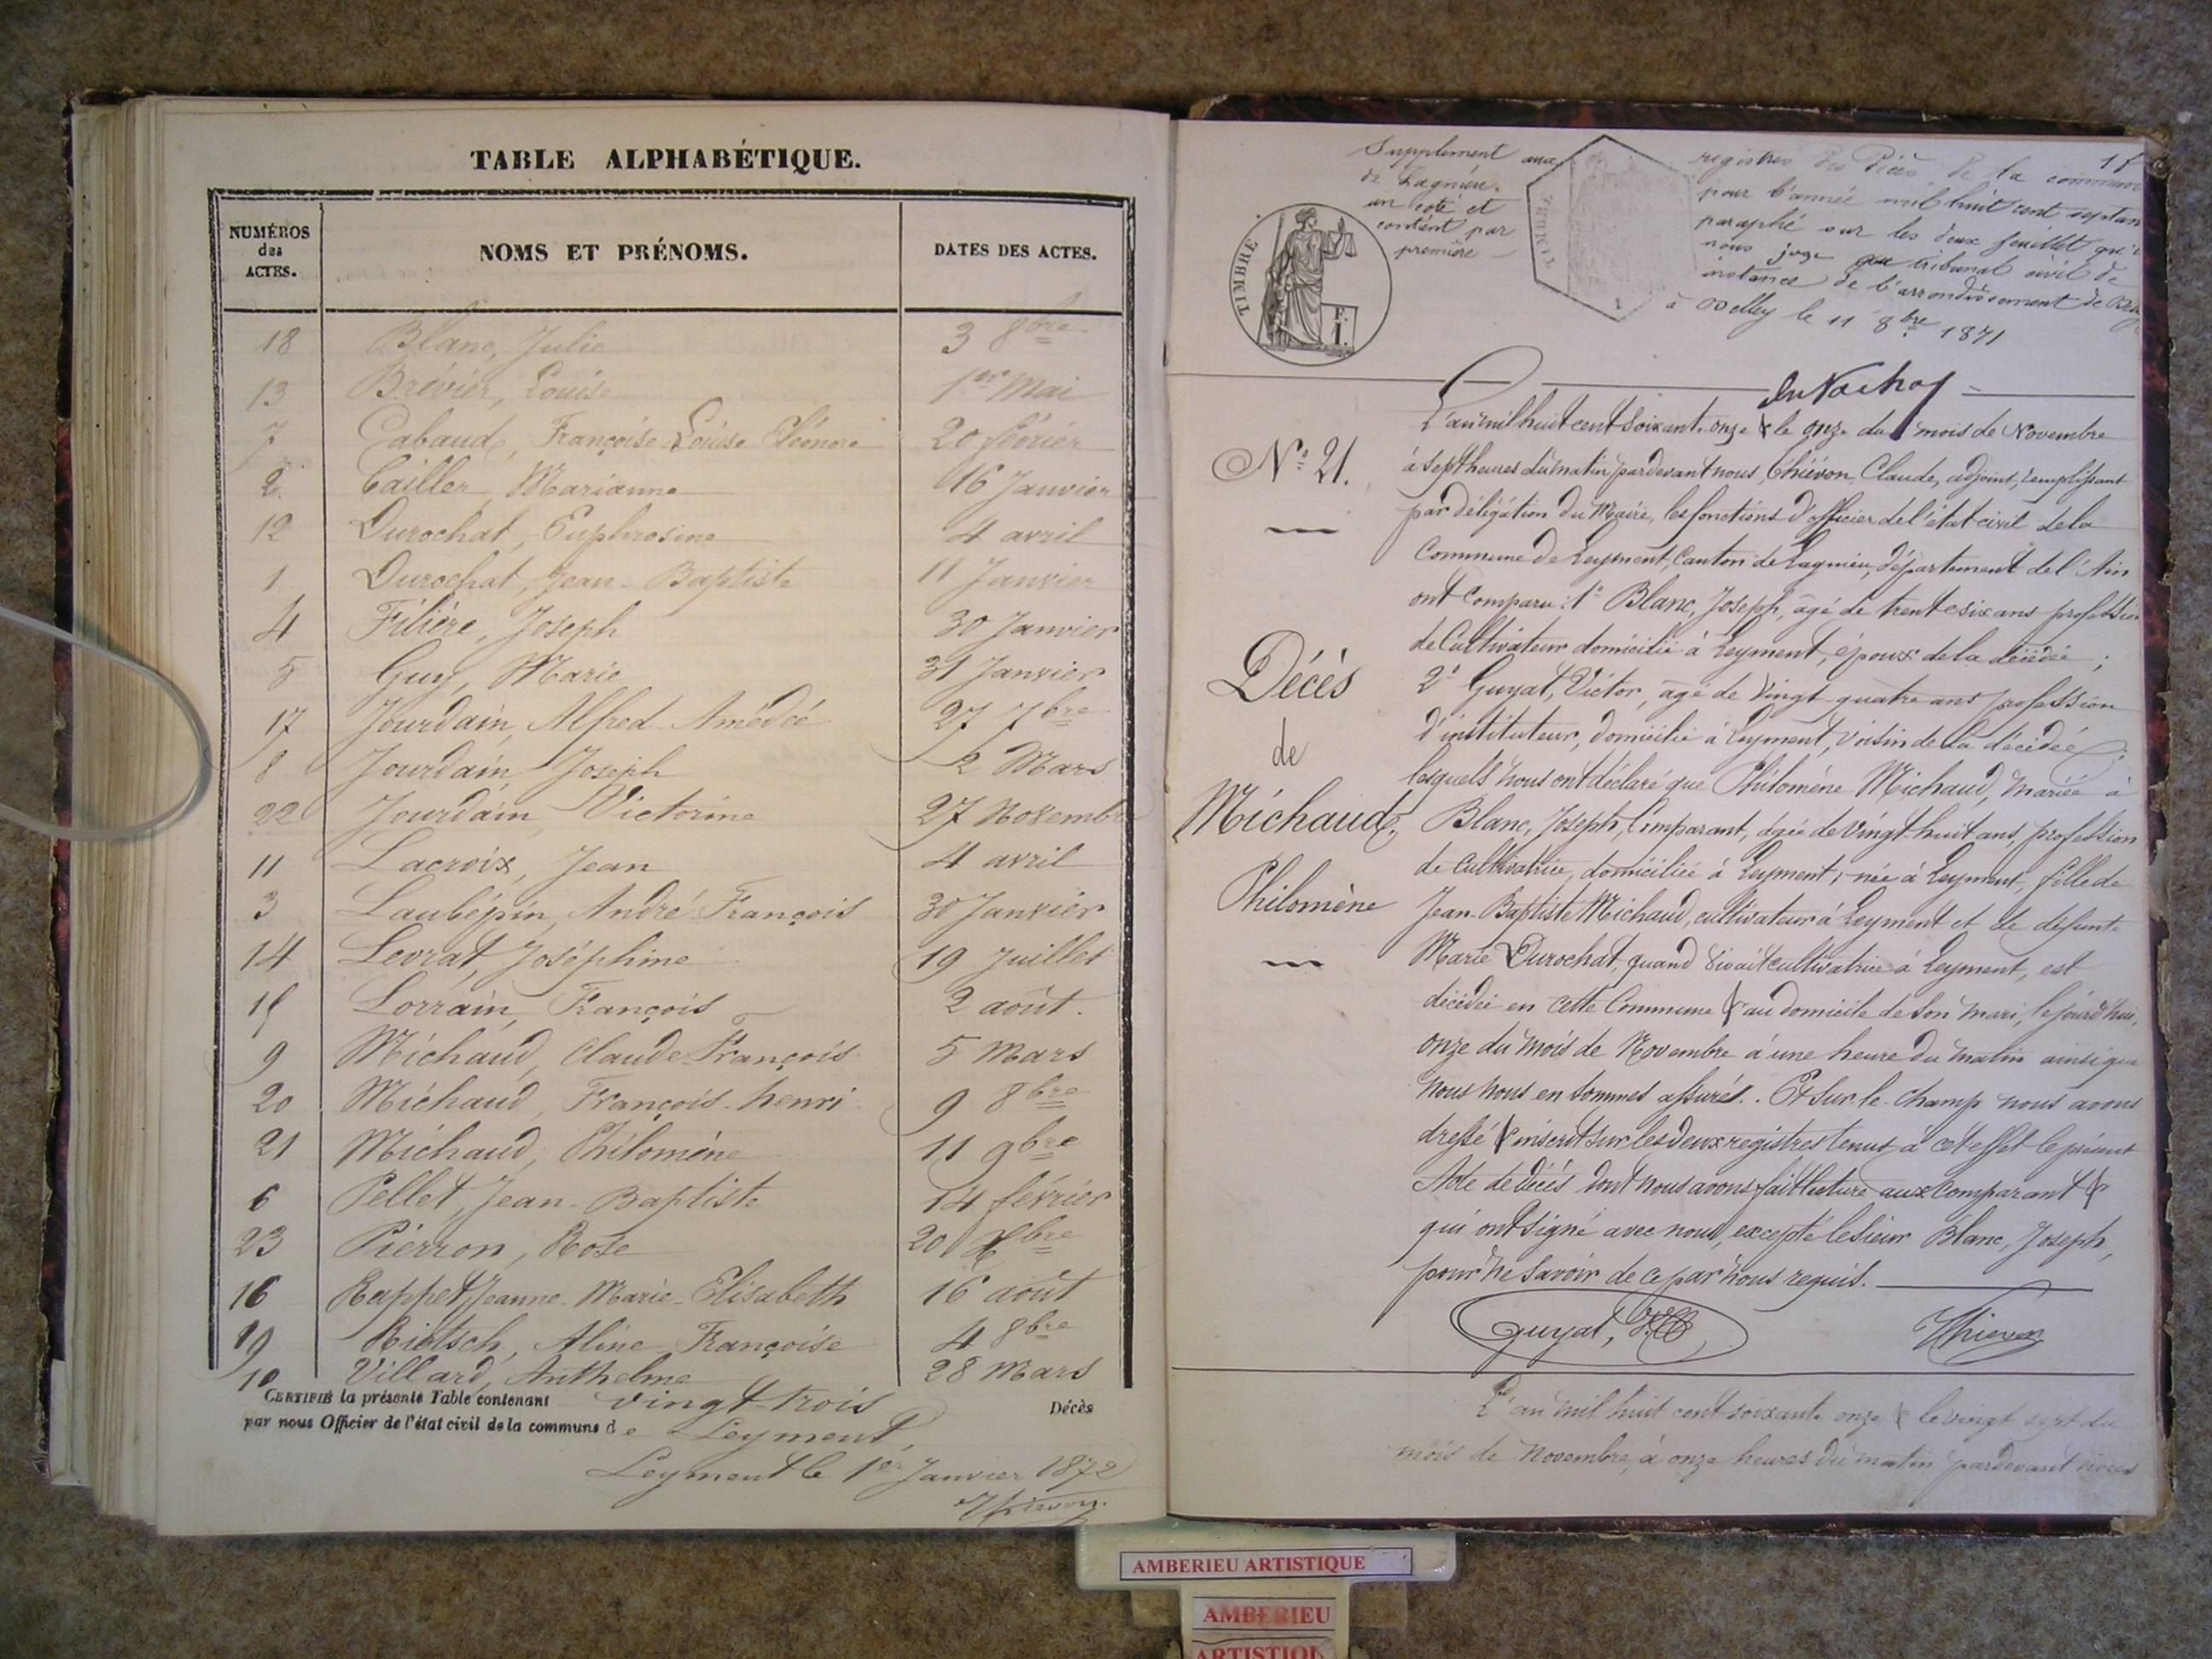 TABLE ALPHABÉTIQUE.
NUMÉROS des ACTES.
NOMS ET PRÉNOMS.
DATES DES ACTES.
18 Blanc, Julie 3 8bre
13 Brévier, Louise 1er Mai
7 Cabaud, Françoise Louise Eléonore 20 février
2 Cailler, Marianne 16 Janvier
12 Durochat, Euphrosine 4 avril
1 Durochat, Jean-Baptiste 11 Janvier
4 Filière, Joseph 30 Janvier
5 Guy, Marie 31 Janvier
17 Jourdain, Alfred Amédée 27 7bre
8 Jourdain Joseph 2 Mars
22 Jourdain Victorine 27 Novembre
11 Lacroix, Jean 4 avril
3 Laubépin, André François 30 Janvier
14 Levrat, Joséphine 19 Juillet
15 Lorrain, François 2 août.
9 Michaud, Claude François 5 Mars
20 Michaud, François-henri 9 8bre
21 Michaud, Philomène 11 9bre
6 Pellet, Jean-Baptiste 14 février
23 Pierron, Rose 20 Xbre
16 Rappet Jeanne-Marie-Elisabeth 16 août
19 Rietsch, Aline Françoise 4 8bre
10 Villard, Anthelme 28 Mars
CERTIFIÉ la présente Table contenant vingt-trois Décès
par nous Officier de l'état civil de la commune de Leyment,
Leyment le 1er Janvier 1872
Thievon.
Supplement aux registres des Décès de la commune
de Lagnieu. pour l'année mil huit cent septan
un coté et paraphé sur les deux feuillet qu'i
contient par nous juge au tribunal civil de
première instance de l'arrondissement de
à Belley le 11 8bre 1871
TIMBRE
F. I.
L'an mil huit cent soixante onze & le onze du mois de Novembre
N° 21. à sept heures du matin pardevant nous, Thiévon, Claude, adjoint, remplissant
par délégation du Maire, les fonctions d'officier de l'état civil de la
Commune de Leyment, Canton de Lagnieu, département de l'Ain
ont comparu: 1° Blanc, Joseph, âgé de trente six ans profession
de Cultivateur domicilié à Leyment, époux de la décédée;
Décès 2° Guyat, Victor, âgé de vingt-quatre ans profession
de d'instituteur, domicilié à Leyment, voisin de la décédée;
lesquels nous ont déclaré que Philomène Michaud, mariée à
Michaud, Blanc, Joseph, Comparant, âgée de vingt-huit ans, profession
de Cultivatrice, domiciliée à Leyment, née à Leyment, fille de
Philomène Jean-Baptiste Michaud, cultivateur à Leyment et de defunte
Marie Durochat, quand vivait cultivatrice à Leyment, est
décédée en cette Commune & au domicile de son mari, lejourd'hui,
onze du mois de Novembre à une heure du matin ainsi que
nous nous en sommes assurés. Et sur le champ nous avons
dressé & inscrit sur les deux registres tenus à cet effet le présent
Acte de Décès dont nous avons fait lecture aux comparant &
qui ont signé avec nous, excepté le sieur Blanc, Joseph,
pour ne savoir de ce par nous requis.
Guyat, Thievon
L'an mil huit cent soixante onze & le vingt sept du
mois de Novembre, à onze heures du matin pardevant nous
AMBERIEU ARTISTIQUE
AMBERIEU
ARTISTIQU